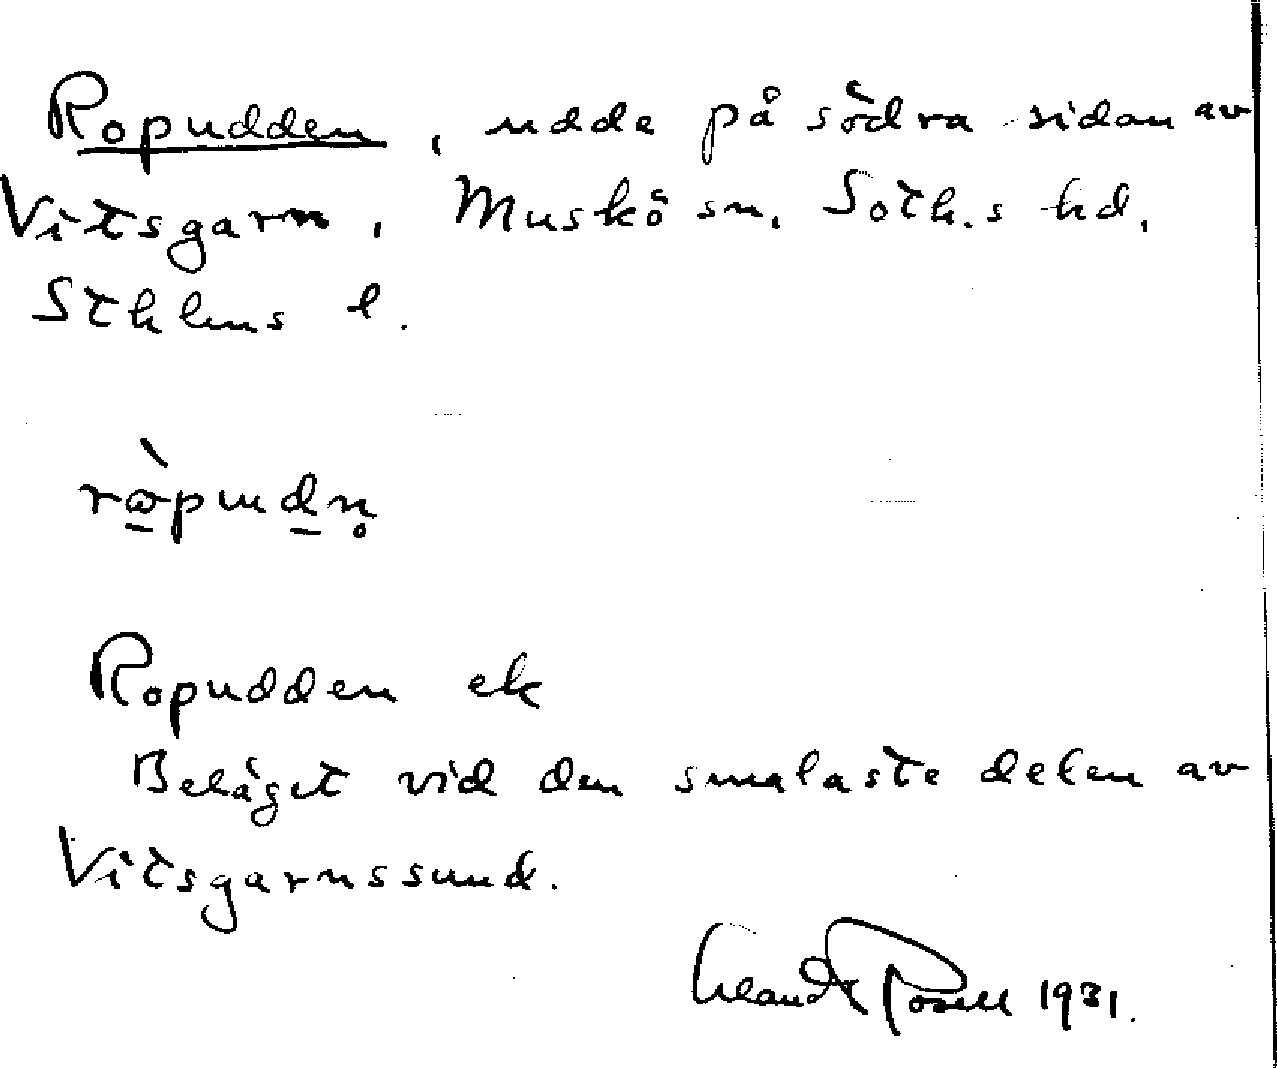 Ropudden, udde på södra sidan av
Vitsgarn, Muskö sn, Soth.s hd,
Sthlms l.
Ropudden ek
Beläget vid den smalaste delen av
Vitsgarnssund.
1931.